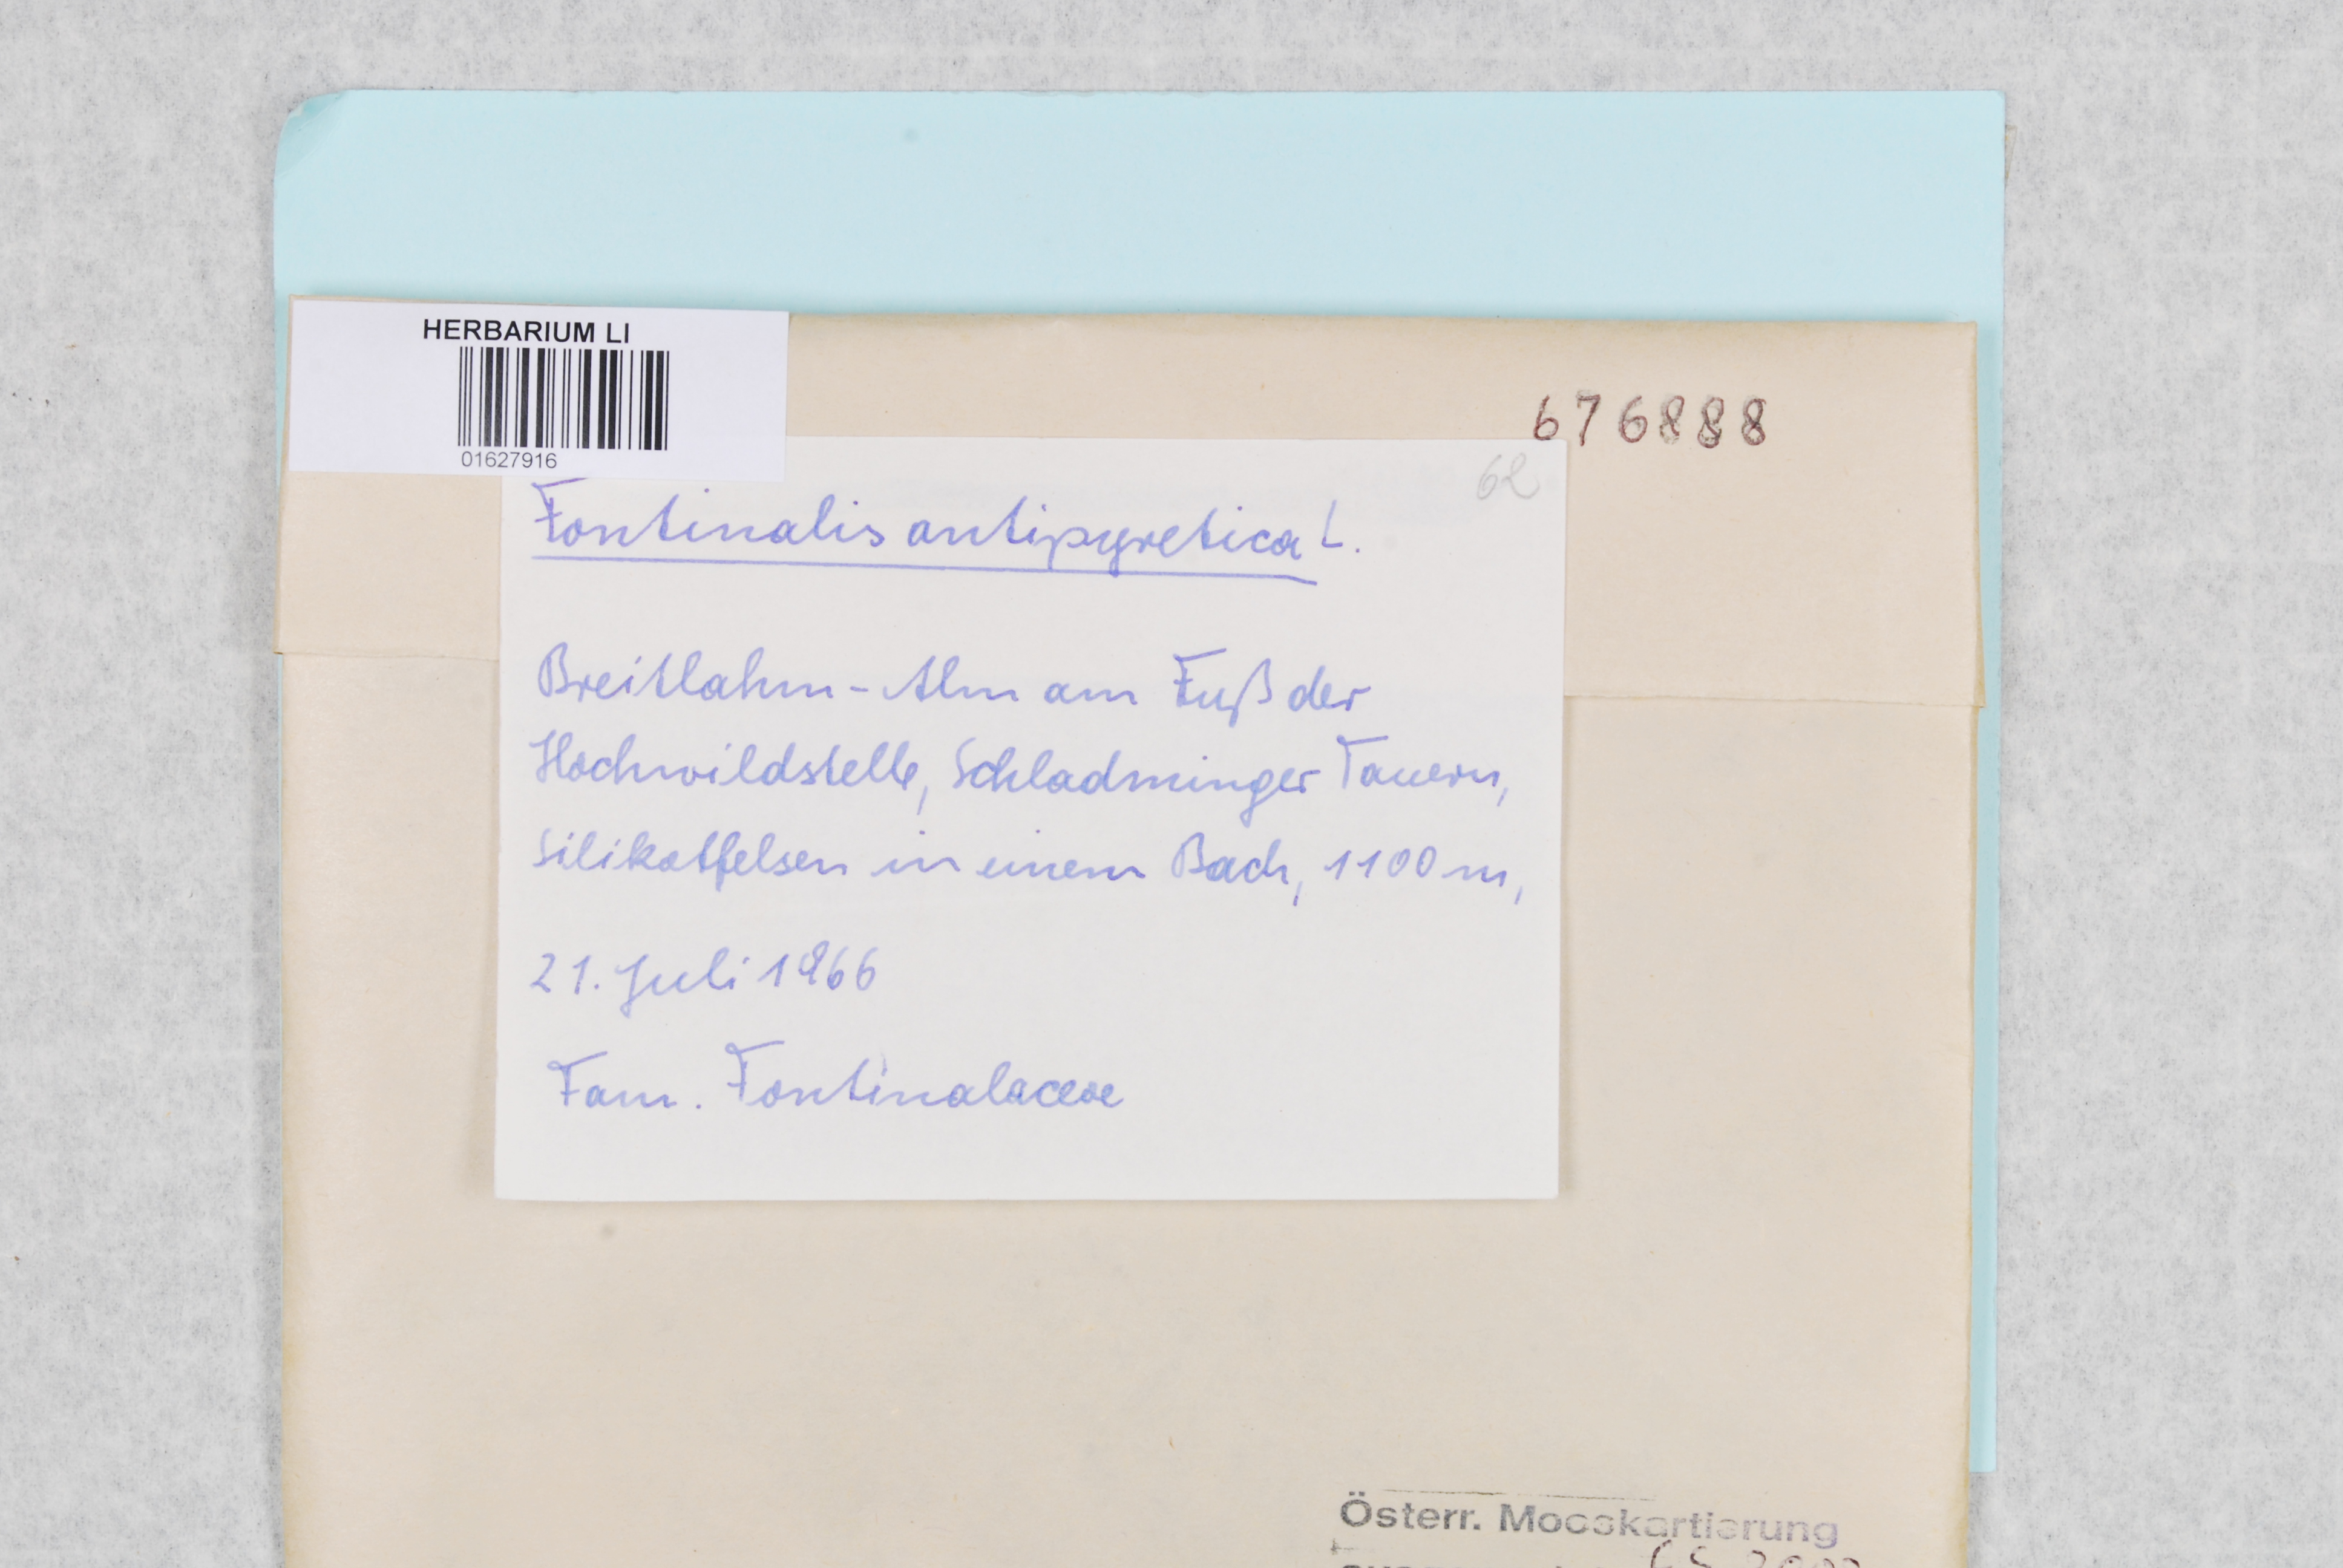 HERBARIUM LI
01627916
676888
62
Fontinalis antipyretica L.
Breitlahm-Alm am Fuß der
Hochwildstelle, Schladminger Tauern,
Silikatfelsen in einem Bach, 1100 m,
21. Juli 1966
Fam. Fontinalaceae
Österr. Mooskartierung